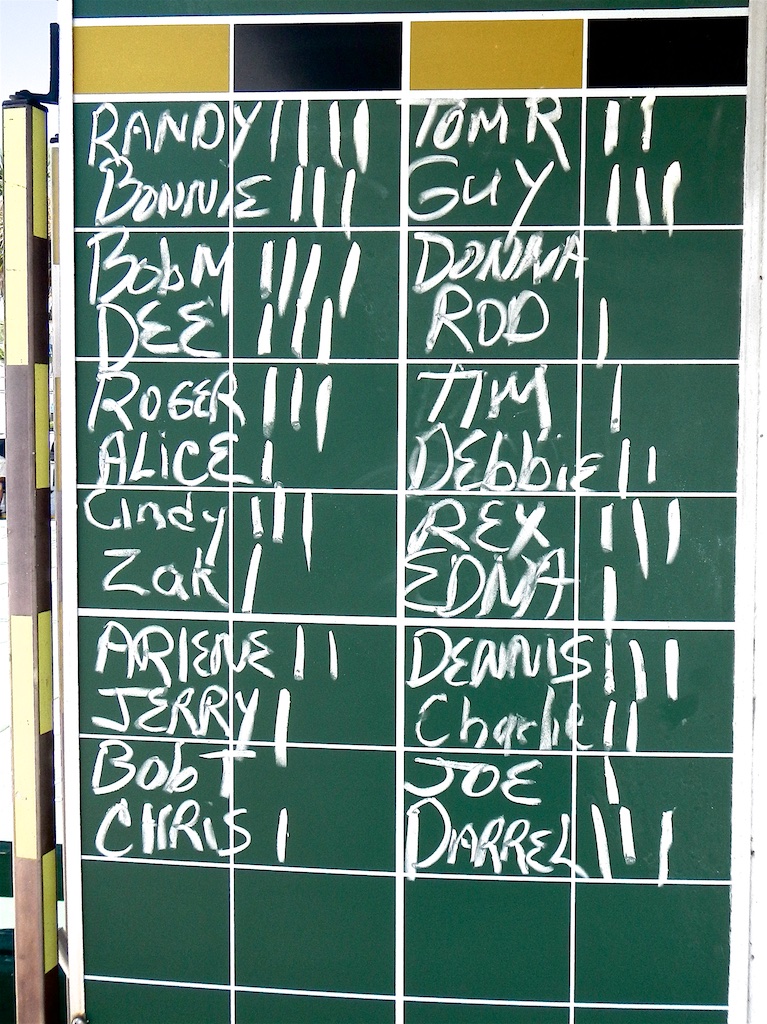 RANDY |||| TOM R ||
BONNIE ||| GUY |||
BOB M |||| DONNA
DEE ||| ROD |
ROGER ||| TIM |
ALICE | DEbbIE ||
Cindy ||| REX |||
Zak | EDNA |
ARLENE || DENNIS |||
JERRY | Charlie ||
BOB T JOE |
CHRIS | DARREL |||